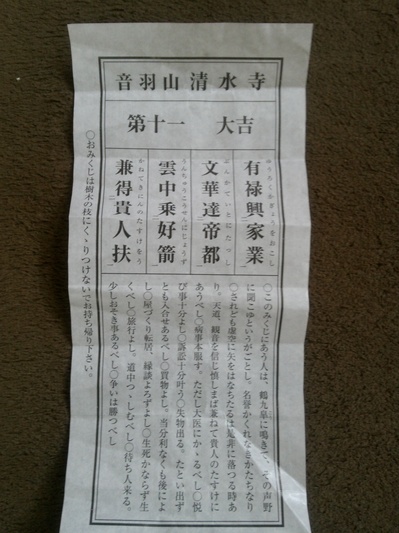 音羽山清水寺
第十一 大吉
有禄興家業
文華達帝都
雲中乗好箭
兼得貴人扶
○このみくじにあう人は、鶴九皐に鳴きて、その声野
に聞こゆというがごとし。名誉かくれなきかたちなり
○されども虚空に矢をはなちたるは是非に落つる時あ
り。天道、観音を信じ慎しまば兼ねて貴人のたすけに
あうべし○病事本服す。ただし大医にかゝるべし○悦
び事十分よし○訴訟十分叶う○失物出る。たとい出ず
とも入合せあるべし○買物よし。当分利なくも後によ
し○屋づくり転居、縁談よろずよし○生死かならず生
くべし○旅行よし。道中つゝしむべし○待ち人来る。
少しおそき事あるべし○争いは勝つべし
○おみくじは樹木の枝にくゝりつけないでお持ち帰り下さい。